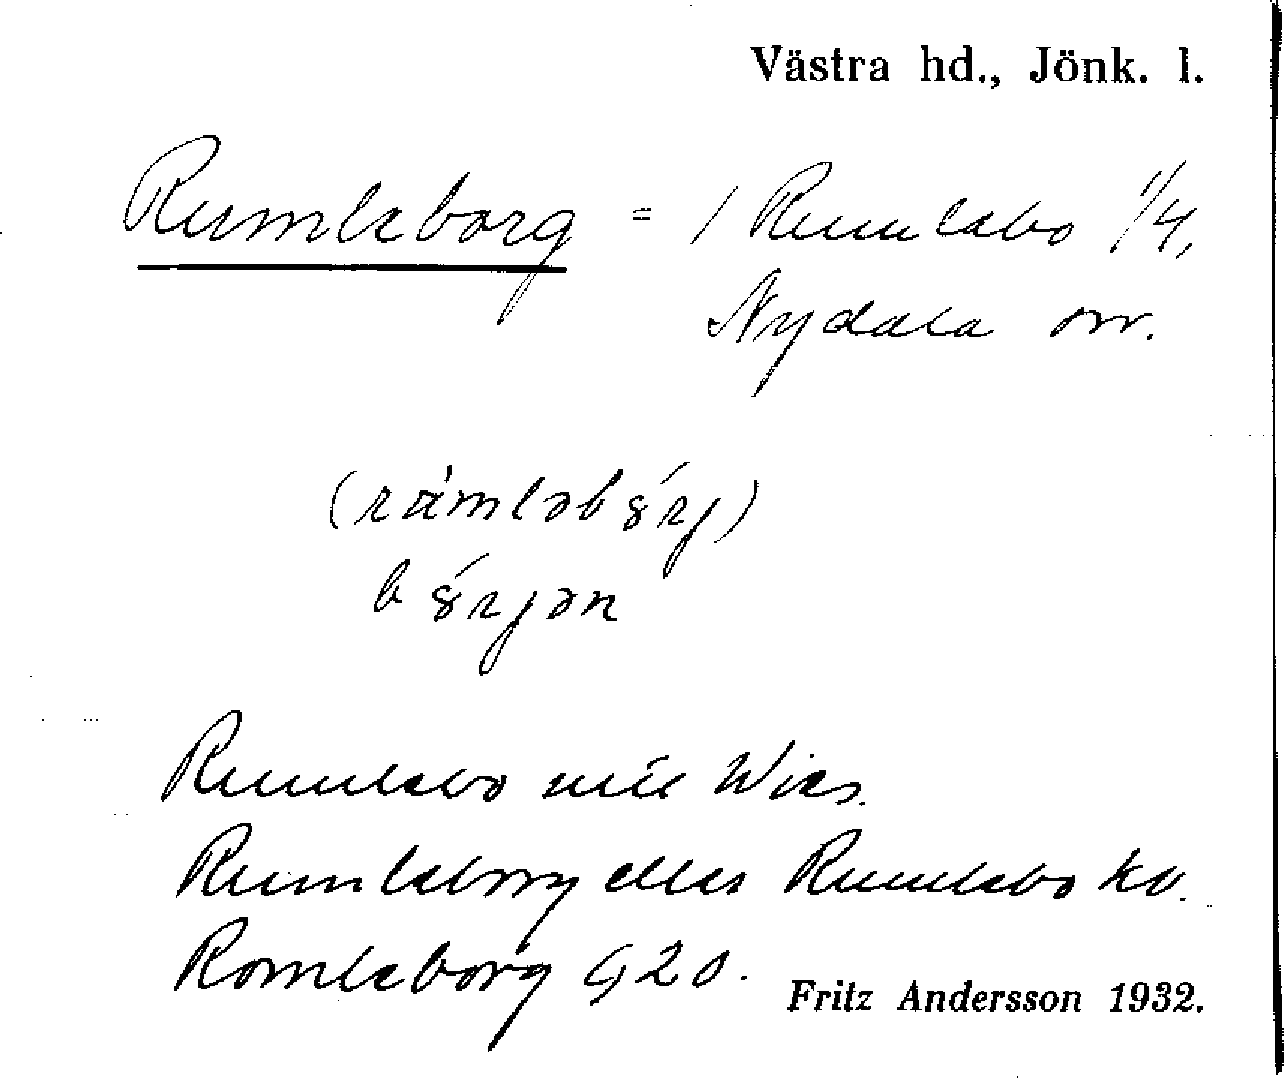 Västra hd., Jönk. l.
Rumleborg = 1 Rumlabo 1/4,
Nydala sn.
(rámləbǿrj)
bǿrjən
Rumlabo Wies.
Rumleborg eller Rumlebo kv.
Romleborg G20.
Fritz Andersson 1932.